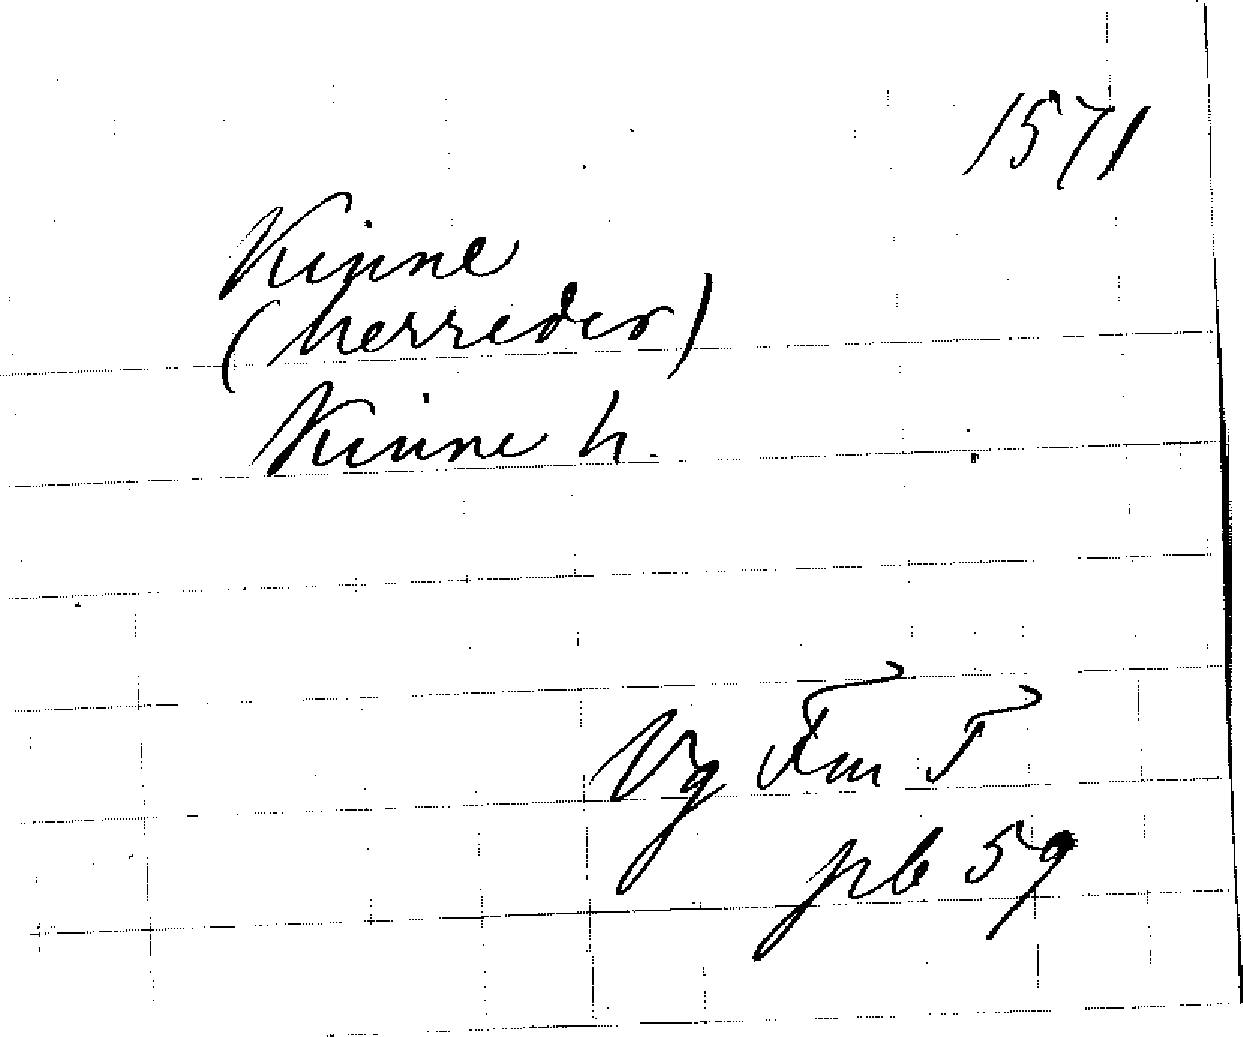 1571
Kinne
(herreder)
Kinne h.
Vg Fm T
pb 59